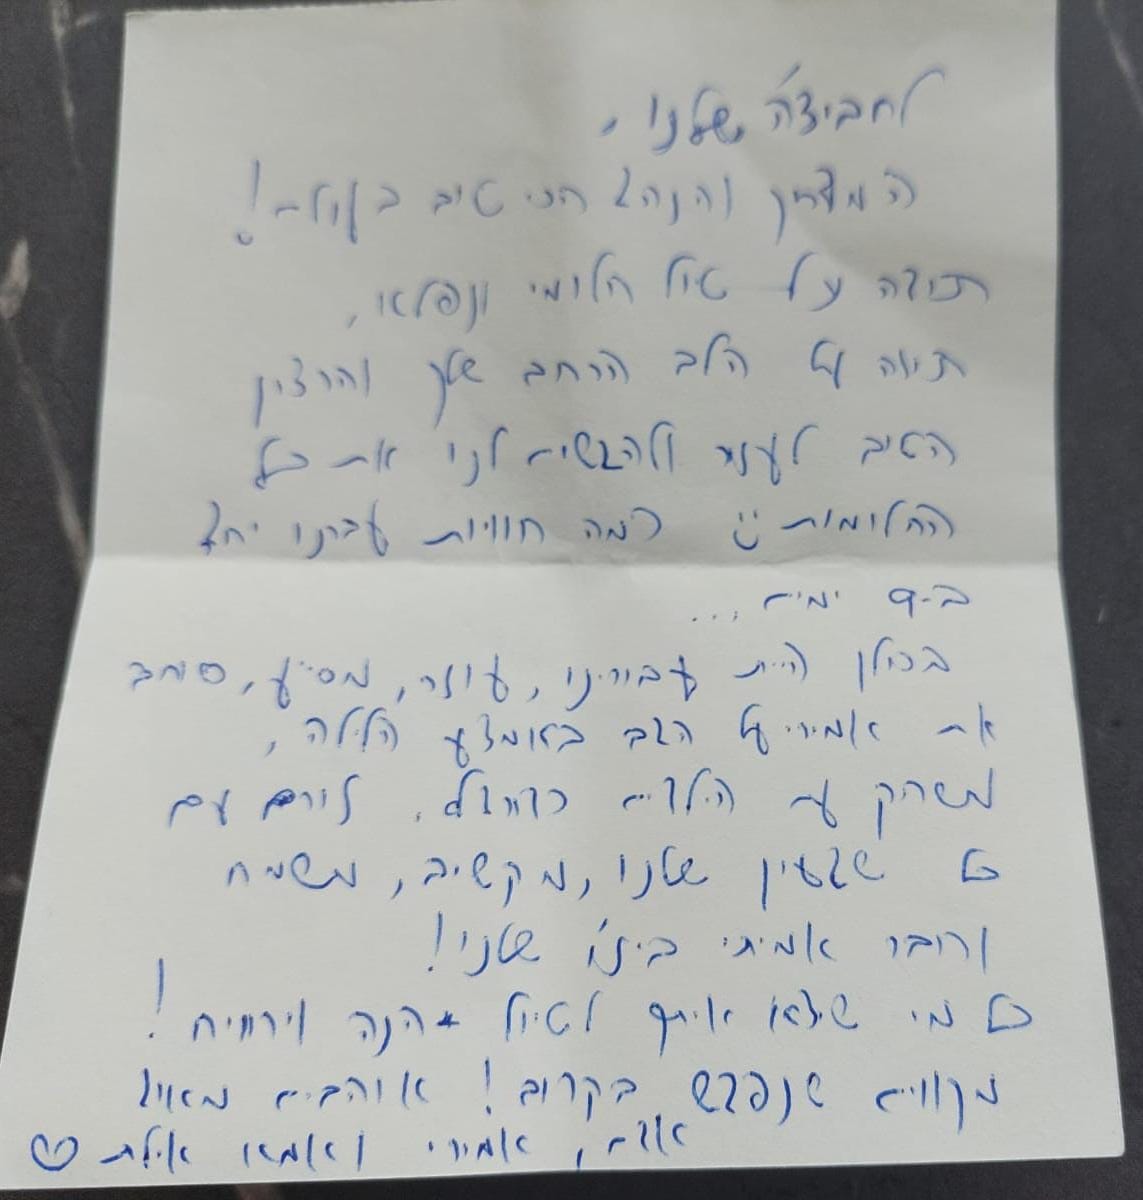 לחביצ'ה שלנו,
המדריך והנהג הכי טוב בעולם!
תודה על טיול חלומי ונפלא,
תודה על הלב הרחב שלך והרצון
הטוב לעזור ולהגשים לנו את כל
החלומות כמה חוויות עברנו יחד
ב-9 ימים...
בכולן היית עבורינו, עוזר, מסיע, סוחב
את אמירי על הגב באמצע הלילה,
משחק עם הילדים כדורגל, זורם עם
כל שגעון שלנו, מקשיב, משמח
וחבר אמיתי שלנו!
כל מי שיצא איתך לטיול נהנה וירוויח!
מקווים שנפגש בקרוב! אוהבים מאוד
אדם, אמירי ואמא אילת ♡